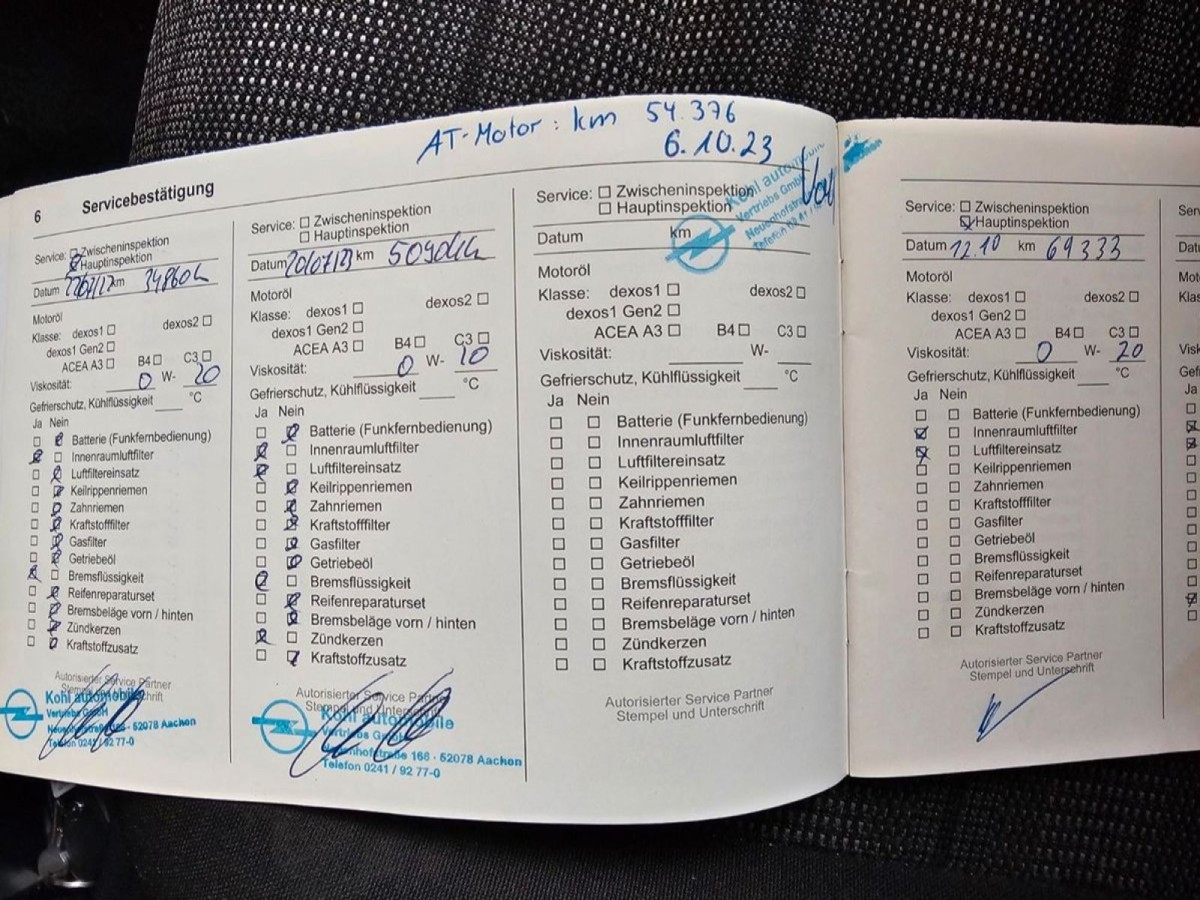 AT-Motor: km 54.376
6.10.23
6 Servicebestätigung
Service: Zwischeninspektion
Hauptinspektion
Datum km
Motoröl
Klasse: dexos1 dexos2
dexos1 Gen2
ACEA A3 B4 C3
Viskosität: 0 W- 20
Gefrierschutz, Kühlflüssigkeit °C
Ja Nein
Batterie (Funkfernbedienung)
Innenraumluftfilter
Luftfiltereinsatz
Keilrippenriemen
Zahnriemen
Kraftstofffilter
Gasfilter
Getriebeöl
Bremsflüssigkeit
Reifenreparaturset
Bremsbeläge vorn / hinten
Zündkerzen
Kraftstoffzusatz
Autorisierter Service Partner
Kohl automobile
Vertriebs GmbH
52078 Aachen
Telefon 0241 / 92 77-0
Service: Zwischeninspektion
Hauptinspektion
Datum 20/07/23 km
Motoröl
Klasse: dexos1 dexos2
dexos1 Gen2
ACEA A3 B4 C3
Viskosität: 0 W- 10
Gefrierschutz, Kühlflüssigkeit °C
Ja Nein
Batterie (Funkfernbedienung)
Innenraumluftfilter
Luftfiltereinsatz
Keilrippenriemen
Zahnriemen
Kraftstofffilter
Gasfilter
Getriebeöl
Bremsflüssigkeit
Reifenreparaturset
Bremsbeläge vorn / hinten
Zündkerzen
Kraftstoffzusatz
Autorisierter Service Partner
Stempel und Unterschrift
Kohl automobile
Vertriebs GmbH
Neuenhofstraße 166 · 52078 Aachen
Telefon 0241 / 92 77-0
Service: Zwischeninspektion
Hauptinspektion
Datum km
Kohl automobile
Vertriebs GmbH
Neuenhofstraße
Telefon 0241
Motoröl
Klasse: dexos1 dexos2
dexos1 Gen2
ACEA A3 B4 C3
Viskosität: W-
Gefrierschutz, Kühlflüssigkeit °C
Ja Nein
Batterie (Funkfernbedienung)
Innenraumluftfilter
Luftfiltereinsatz
Keilrippenriemen
Zahnriemen
Kraftstofffilter
Gasfilter
Getriebeöl
Bremsflüssigkeit
Reifenreparaturset
Bremsbeläge vorn / hinten
Zündkerzen
Kraftstoffzusatz
Autorisierter Service Partner
Stempel und Unterschrift
Service: Zwischeninspektion
Hauptinspektion
Datum 12.10 km 69333
Motoröl
Klasse: dexos1 dexos2
dexos1 Gen2
ACEA A3 B4 C3
Viskosität: 0 W- 20
Gefrierschutz, Kühlflüssigkeit °C
Ja Nein
Batterie (Funkfernbedienung)
Innenraumluftfilter
Luftfiltereinsatz
Keilrippenriemen
Zahnriemen
Kraftstofffilter
Gasfilter
Getriebeöl
Bremsflüssigkeit
Reifenreparaturset
Bremsbeläge vorn / hinten
Zündkerzen
Kraftstoffzusatz
Autorisierter Service Partner
Stempel und Unterschrift